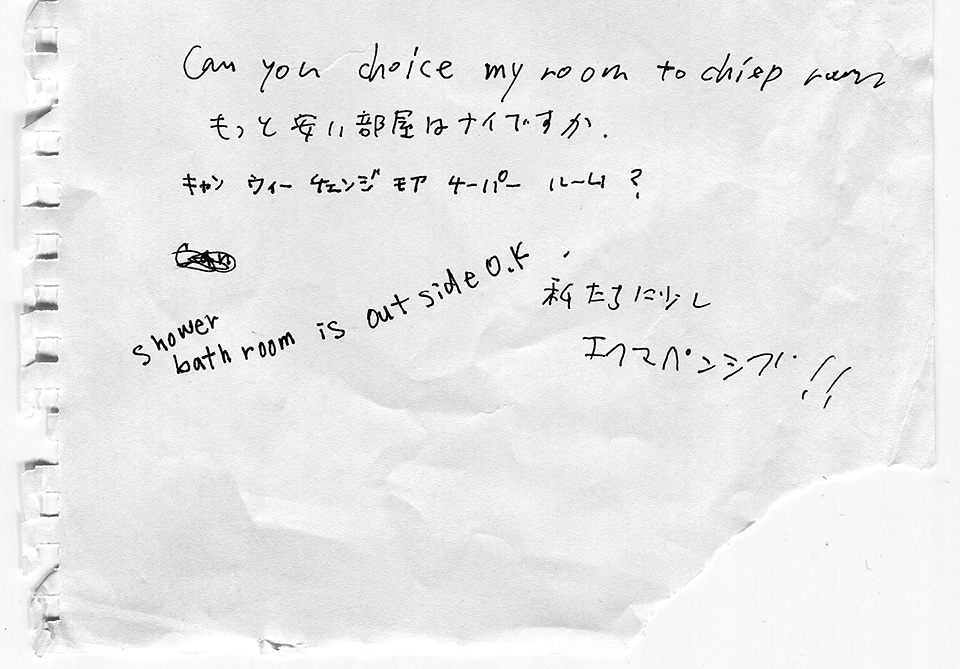 Can you choice my room to chiep room
もっと安い部屋はナイですか.
キャン ウィー チェンジ モア チーパー ルーム ?
shower
bath room is out side O.K
私たちに少し
エクスペンシブ !!